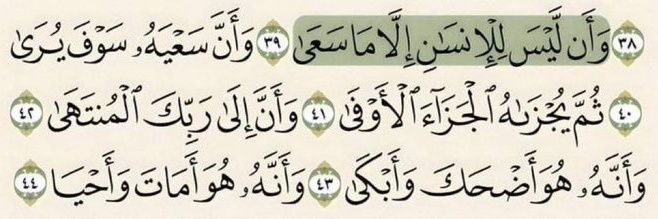 ٣٨ وَأَن لَّيْسَ لِلْإِنسَٰنِ إِلَّا مَا سَعَىٰ ٣٩ وَأَنَّ سَعْيَهُۥ سَوْفَ يُرَىٰ
٤٠ ثُمَّ يُجْزَىٰهُ ٱلْجَزَآءَ ٱلْأَوْفَىٰ ٤١ وَأَنَّ إِلَىٰ رَبِّكَ ٱلْمُنتَهَىٰ ٤٢
وَأَنَّهُۥ هُوَ أَضْحَكَ وَأَبْكَىٰ ٤٣ وَأَنَّهُۥ هُوَ أَمَاتَ وَأَحْيَا ٤٤